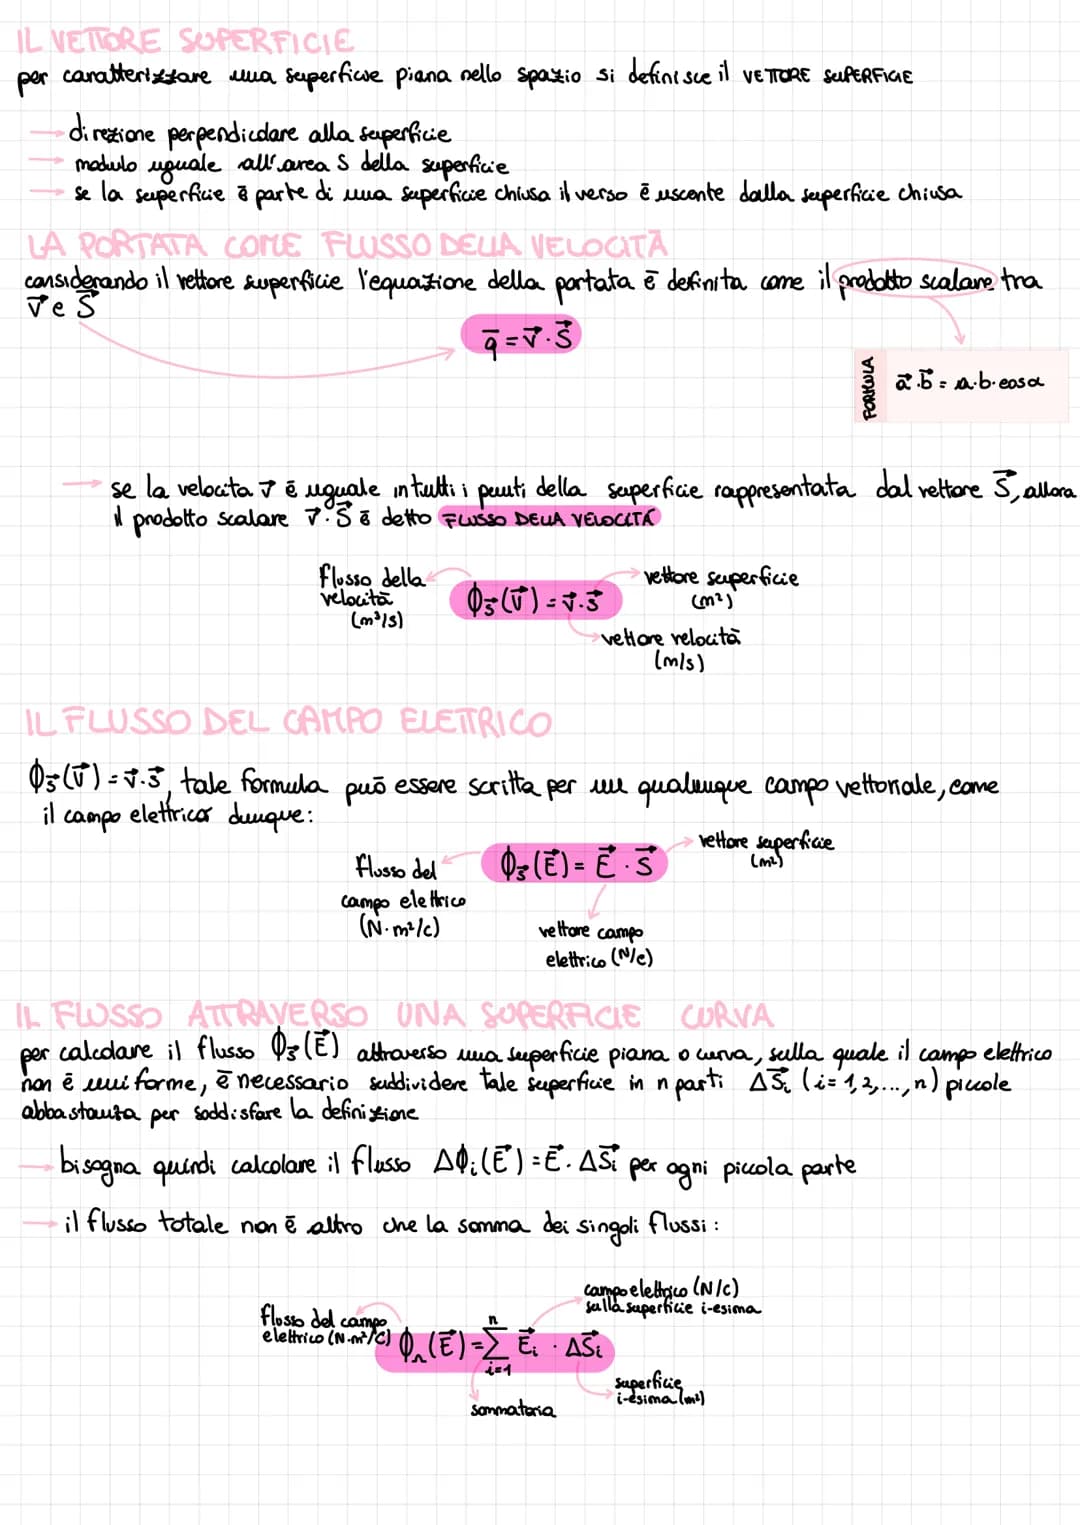 IL VETTORE SUPERFICIE
per caratterizzare una superficie piana nello spazio si definisce il VETTORE SUPERFICIE
→ direzione perpendicolare alla superficie
→ modulo uguale all'area S della superficie
→ se la superficie è parte di una superficie chiusa il verso è uscente dalla superficie chiusa
LA PORTATA COME FLUSSO DELLA VELOCITÀ
considerando il vettore superficie l'equazione della portata è definita come il prodotto scalare tra
v⃗ e S⃗
q̅ = v⃗ · S⃗
FORMULA
a⃗ · b⃗ = a·b·cosα
→ se la velocità v⃗ è uguale in tutti i punti della superficie rappresentata dal vettore S⃗, allora
il prodotto scalare v⃗ · S⃗ è detto FLUSSO DELLA VELOCITÀ
flusso della
velocità
(m³/s)
Φs⃗(v⃗) = v⃗ · s⃗
vettore superficie
(m²)
vettore velocità
(m/s)
IL FLUSSO DEL CAMPO ELETTRICO
Φs⃗(v⃗) = v⃗ · s⃗, tale formula può essere scritta per un qualunque campo vettoriale, come
il campo elettrico, dunque:
flusso del
campo elettrico
(N·m²/c)
Φs⃗(E⃗) = E⃗ · S⃗
vettore superficie
(m²)
vettore campo
elettrico (N/c)
IL FLUSSO ATTRAVERSO UNA SUPERFICIE CURVA
per calcolare il flusso Φs⃗(E⃗) attraverso una superficie piana o curva, sulla quale il campo elettrico
non è uniforme, è necessario suddividere tale superficie in n parti ΔS⃗i (i = 1,2,...,n) piccole
abbastanza per soddisfare la definizione
→ bisogna quindi calcolare il flusso ΔΦi(E⃗) = E⃗ · ΔS⃗i per ogni piccola parte
→ il flusso totale non è altro che la somma dei singoli flussi:
flusso del campo
elettrico (N·m²/C)
Φn(E⃗) = Σ E⃗i · ΔS⃗i
n
i=1
campo elettrico (N/C)
sulla superficie i-esima
superficie
i-esima (m²)
sommatoria